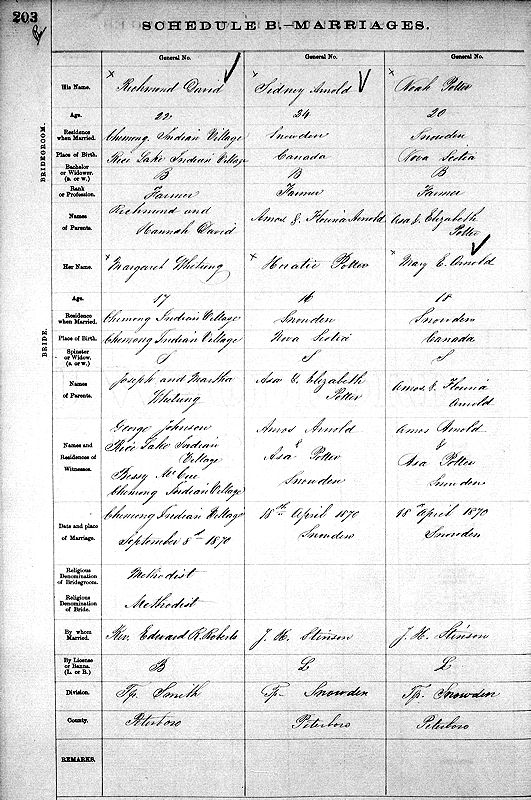 203
SCHEDULE B.—MARRIAGES.
General No. General No. General No.
BRIDEGROOM.
His Name. × Richmond David × Sidney Arnold × Noah Potter
Age. 22 24 20
Residence when Married. Chemong Indian Village Snowden Snowden
Place of Birth. Rice Lake Indian Village Canada Nova Scotia
Bachelor or Widower. (B. or W.) B B B
Rank or Profession. Farmer Farmer Farmer
Names of Parents. Richmond and Hannah David Amos & Arnold Asa & Elizabeth Potter
BRIDE.
Her Name. × Margaret Whetung × Potter × Mary E. Arnold
Age. 17 16 18
Residence when Married. Chemong Indian Village Snowden Snowden
Place of Birth. Chemong Indian Village Nova Scotia Canada
Spinster or Widow. (S. or W.) S S S
Names of Parents. Joseph and Martha Whetung Asa & Elizabeth Potter Amos & Arnold
Names and Residences of Witnesses. George Johnson Rice Lake Indian Village Bessy McCue Chemong Indian Village Amos Arnold & Asa Potter Snowden Amos Arnold & Asa Potter Snowden
Date and place of Marriage. Chemong Indian Village September 8th 1870 18th April 1870 Snowden 18th April 1870 Snowden
Religious Denomination of Bridegroom. Methodist
Religious Denomination of Bride. Methodist
By whom Married. Rev. Edward R. Roberts J. H. Stinson J. H. Stinson
By License or Banns. (L. or B.) B L L
Division. Tp. Smith Tp. Snowden Tp. Snowden
County. Peterboro Peterboro Peterboro
REMARKS.